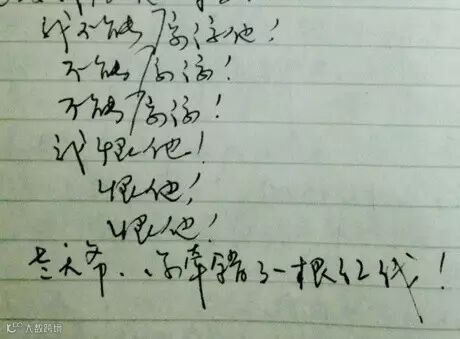 我不能原谅他！
不能原谅！
不能原谅！
我恨他！
恨他！
恨他！
老天爷，你牵错了一根红线！
大数跨境